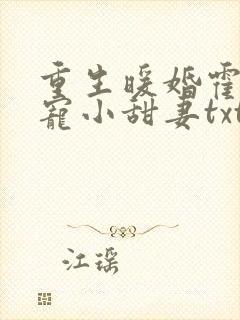 重生暖婚霍
宠小甜妻txt
江瑶